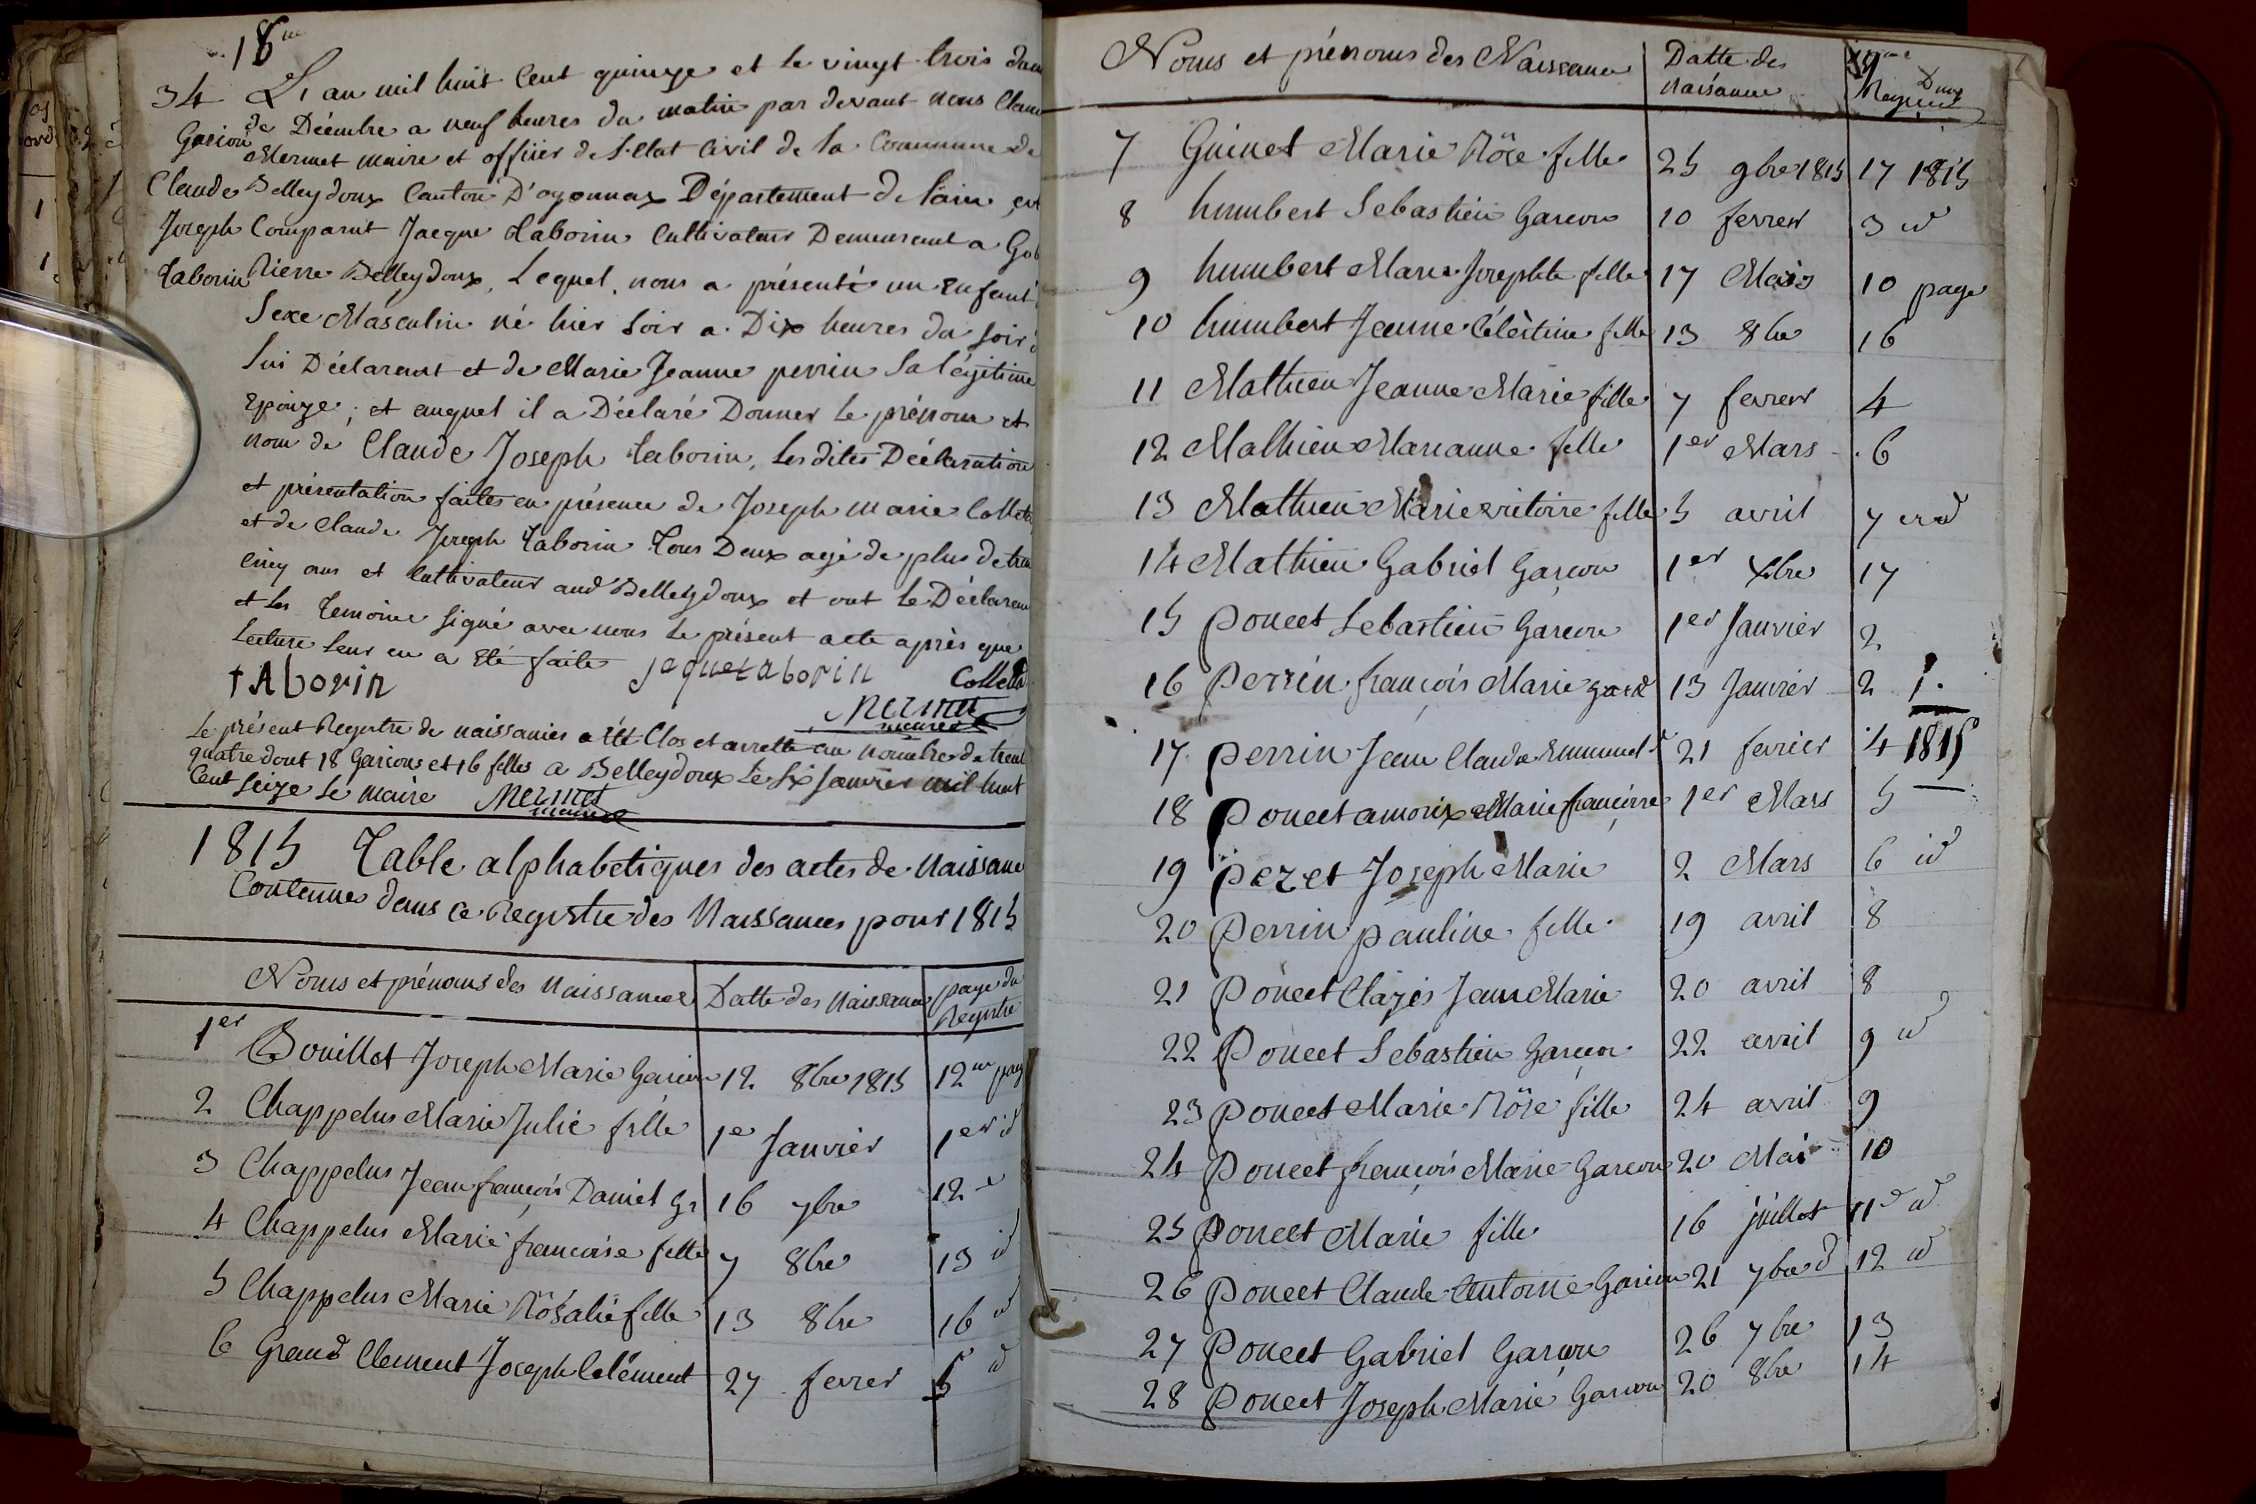 18me
34 L'an mil huit Cent quinze et le vingt trois du
Garcon de Décembre a neuf heures du matin par devant nous Claude
Mermet maire et officier de l'Etat Civil de la Commune De
Claude Belleydoux Canton D'oyonnax Département de l'ain, est
Joseph Comparut Jacque taborin Cultivateur Demeurant a
taborin Belleydoux, Lequel, nous a présenté un Enfant
Sexe Masculin né hier soir a Dix heures du soir
lui Déclarant et de Marie Jeanne perrin Sa légitime
Epouze, et auquel il a Déclaré Donner le prénom et
nom de Claude Joseph taborin, Les dites Déclaration
et présentation faites en présence de Joseph marie Collet
et de Claude Joseph taborin tous Deux agé de plus de
cinq ans et Cultivateur aud Belleydoux et ont le Déclarant
et les temoins signé avec nous le présent acte après que
Lecture leur en a Eté faite
tAborin jaquetaborin Collet
Mermet
maire
Le présent Registre de naissances a été Clos et arretté au nombre de trente
quatre dont 18 Garcons et 16 filles a Belleydoux Le Six Janvier mil huit
Cent Seize Le maire Mermet
maire
1815 Table alphabetiques des actes de Naissance
Contenues dans ce Registre des Naissances pour 1815
Noms et prénoms des Naissances Datte des Naissances page du Registre
1er Bouillet Joseph Marie Garcon 12 8bre 1815 12me page
2 Chappelus Marie Julie fille 1er Janvier 1er id
3 Chappelus Jean françois Daniel 16 7bre 12
4 Chappelus Marie françoise fille 7 8bre 13 id
5 Chappelus Marie Rôsalie fille 13 8bre 16 id
6 Grand Clement Joseph Celément 27 fevrer 5 id
Noms et prénoms des Naissance Datte des Naisance Registre
7 Guinet Marie Rôse fille 25 9bre 1815 17 1815
8 humbert Sebastien Garcon 10 fevrer 3 id
9 humbert Marie Josephte fille 17 Mais 10 page
10 humbert Jeanne Célèstine fille 13 8bre 16
11 Mathieu Jeanne Marie fille 7 fevrer 4
12 Mathieu Marianne fille 1er Mars 6
13 Mathieu Marie victoire fille 5 avril 7
14 Mathieu Gabriel Garçon 1er Xbre 17
15 poncet Sebastien Garcon 1er Janvier 2
16 Perrin françois Marie 13 Janvier 2
17 perrin Jean Claude Emmanuel 21 fevrier 4 1815
18 Poncet amorix Marie françoise 1er Mars 5
19 pezet Joseph Marie 2 Mars 6 id
20 Perrin pauline fille 19 avril 8
21 Poncet Clazis Jean Marie 20 avril 8
22 Poncet Sebastien Garçon 22 avril 9 id
23 poncet Marie Rôse fille 24 avril 9
24 poncet françois Marie Garcon 20 Mai 10
25 Poncet Marie fille 16 juillet 11 id
26 poncet Claude Antoine Garcon 21 7bre 12 id
27 Poncet Gabriel Garcon 26 7bre 13
28 Poncet Joseph Marie Garcon 20 8bre 14